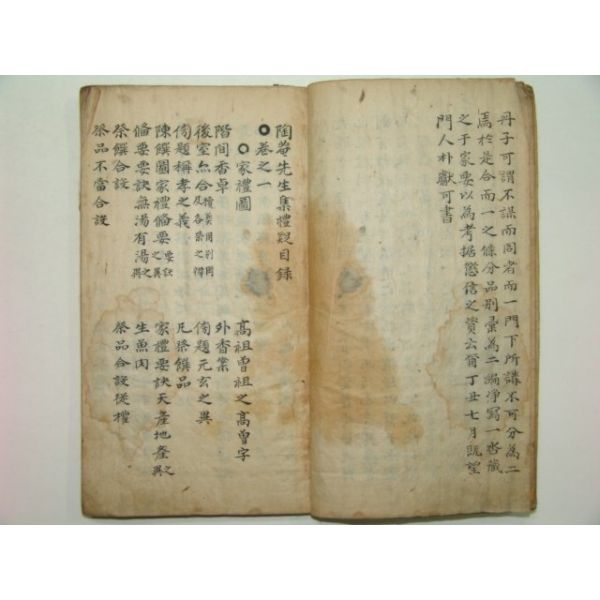 丹子可謂不謀而同者而一門下所講不可分為二
焉於是合而一之條分品別彙為二編淨寫一沓藏
之于家要以為考据懲信之資云爾丁丑七月旣望
門人朴獻可書
陶菴先生集禮說目錄
○卷之一
○家禮圖
高祖曾祖之高曾字
階間香卓
外香案
後室亦合 及各祭之禮
傍題元玄之異
傍題稱孝之義
凡祭饌品
陳饌圖家禮備要要訣之異
家禮要訣天產地產之異
備要要訣無湯有湯之異
生魚肉
祭饌合設
祭品合設從權
祭品不當合設